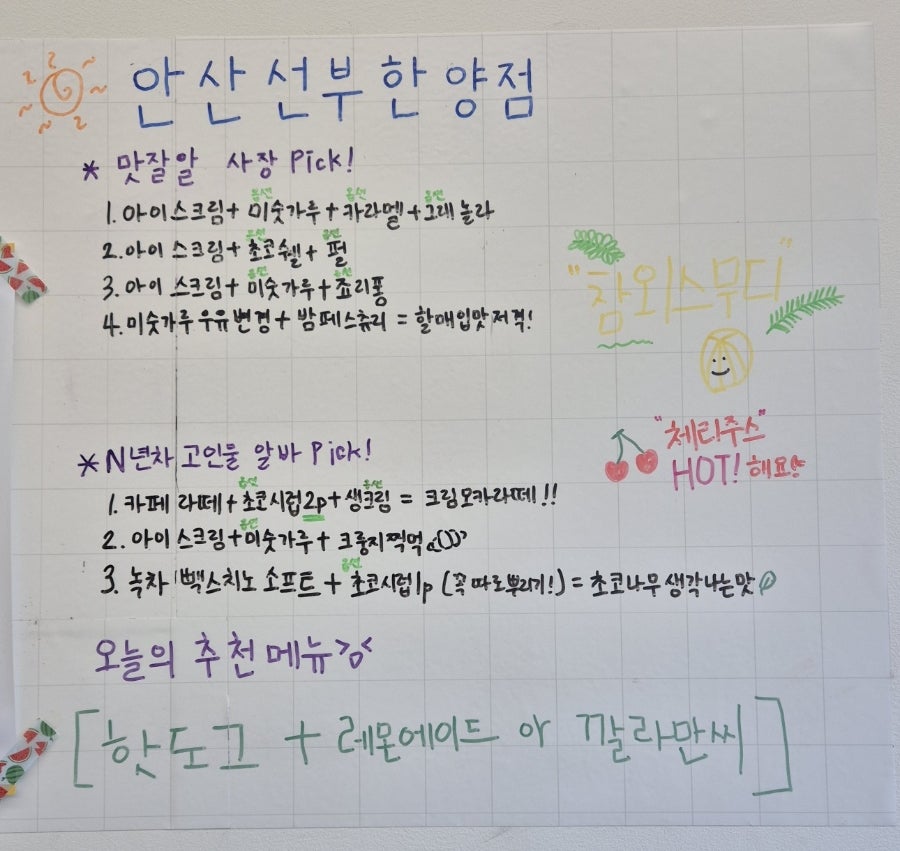 안산선부한양점
* 맛잘알 사장 Pick!
옵션 옵션 옵션
1. 아이스크림 + 미숫가루 + 카라멜 + 그래놀라
옵션 옵션
2. 아이스크림 + 초코쉘 + 펄
옵션 옵션
3. 아이스크림 + 미숫가루 + 죠리퐁
4. 미숫가루 우유변경 + 밤페스츄리 = 할매입맛저격!
"참외스무디"
"체리주스"
HOT! 해요
* N년차 고인물 알바 Pick!
옵션 옵션
1. 카페라떼 + 초코시럽2p + 생크림 = 크림모카라떼!!
옵션
2. 아이스크림 + 미숫가루 + 크룽지찍먹
옵션
3. 녹차 빽스치노 소프트 + 초코시럽1p (꼭 따로뿌리기!) = 초코나무 생각나는맛
오늘의 추천메뉴><
[핫도그 + 레몬에이드 or 깔라만씨]